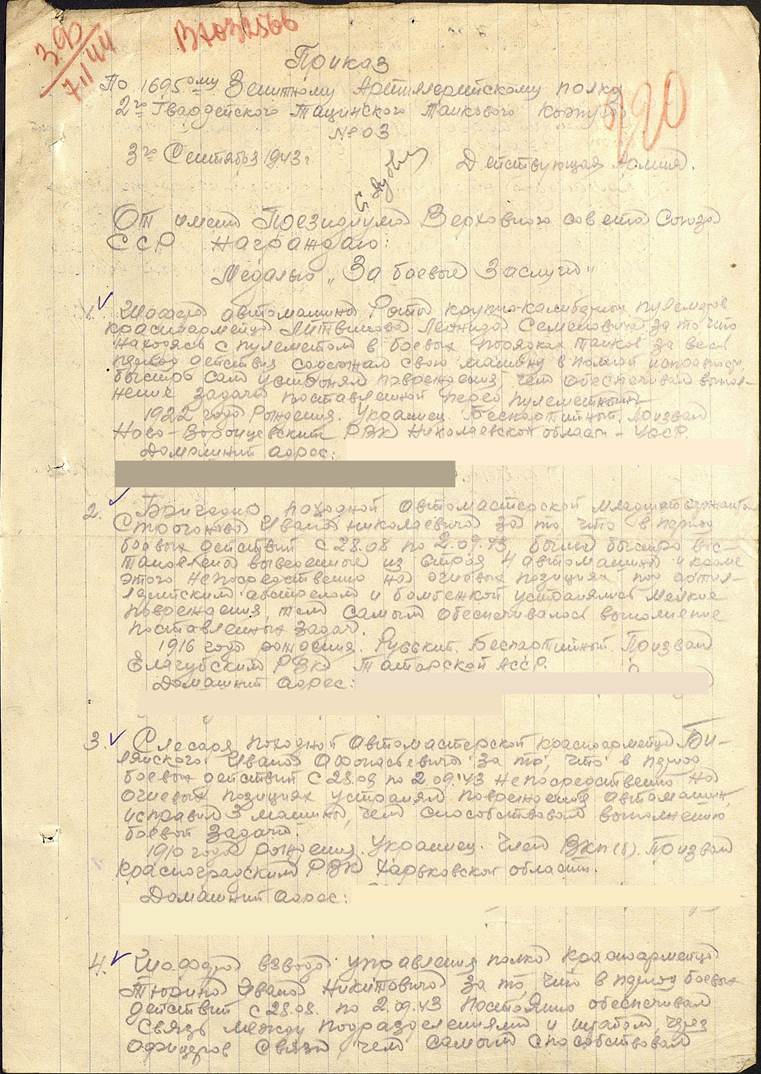 392
7.II 44
Приказ
По 1695ому Зенитному Артиллерийскому полку
2го Гвардейского Тацинского Танкового корпуса
№ 03
120
3го Сентября 1943г
Действующая Армия.
От имени Президиума Верховного совета Союза
ССР награждаю:
Медалью „За боевые Заслуги"
1. Шофера автомашины Роты крупно-калиберных пулеметов
красноармейца Литвинова Леонида Семеновича за то что
находясь с пулеметом в боевых порядках танков за весь
период действия содержал свою машину в полной исправности,
быстро сам устранял повреждения, чем обеспечивал выпол-
нение задачи поставленной перед пулеметчиками
1922 года рождения. Украинец. Беспартийный, призван
Ново-Воронцовским РВК Николаевской области - УССР.
Домашний адрес:
2. Бригадира походной автомастерской младшего сержанта
Строганова Ивана Николаевича за то, что в период
боевых действий с 28.08 по 2.09.43 были быстро вос-
тановлены выведенные из строя 4 автомашины и кроме
этого непосредственно на огневых позициях под артил-
лерийским обстрелом и бомбежкой устранялись мелкие
повреждения, тем самым обеспечивалось выполнение
поставленных задач.
1916 года рождения. Русский. Беспартийный. Призван
Елагубским РВК Татарской АССР.
Домашний адрес:
3. Слесаря походной автомастерской красноармейца Би-
лянского Ивана Афонасьевича за то, что в период
боевых действий с 28.08 по 2.09.43 непосредственно на
огневых позициях устранял повреждения автомашин,
исправил 3 машины, чем способствовал выполнению
боевой задачи.
1910 года рождения. Украинец. Член ВКП(б). Призван
Красноградским РВК Харьковской области.
Домашний адрес:
4. Шофера взвода управления полка красноармейца
Тюрина Ивана Никитовича за то, что в период боевых
действий с 28.08. по 2.09.43 постоянно обеспечивал
связь между подразделениями и штабом, через
офицеров связи чем самым способствовал